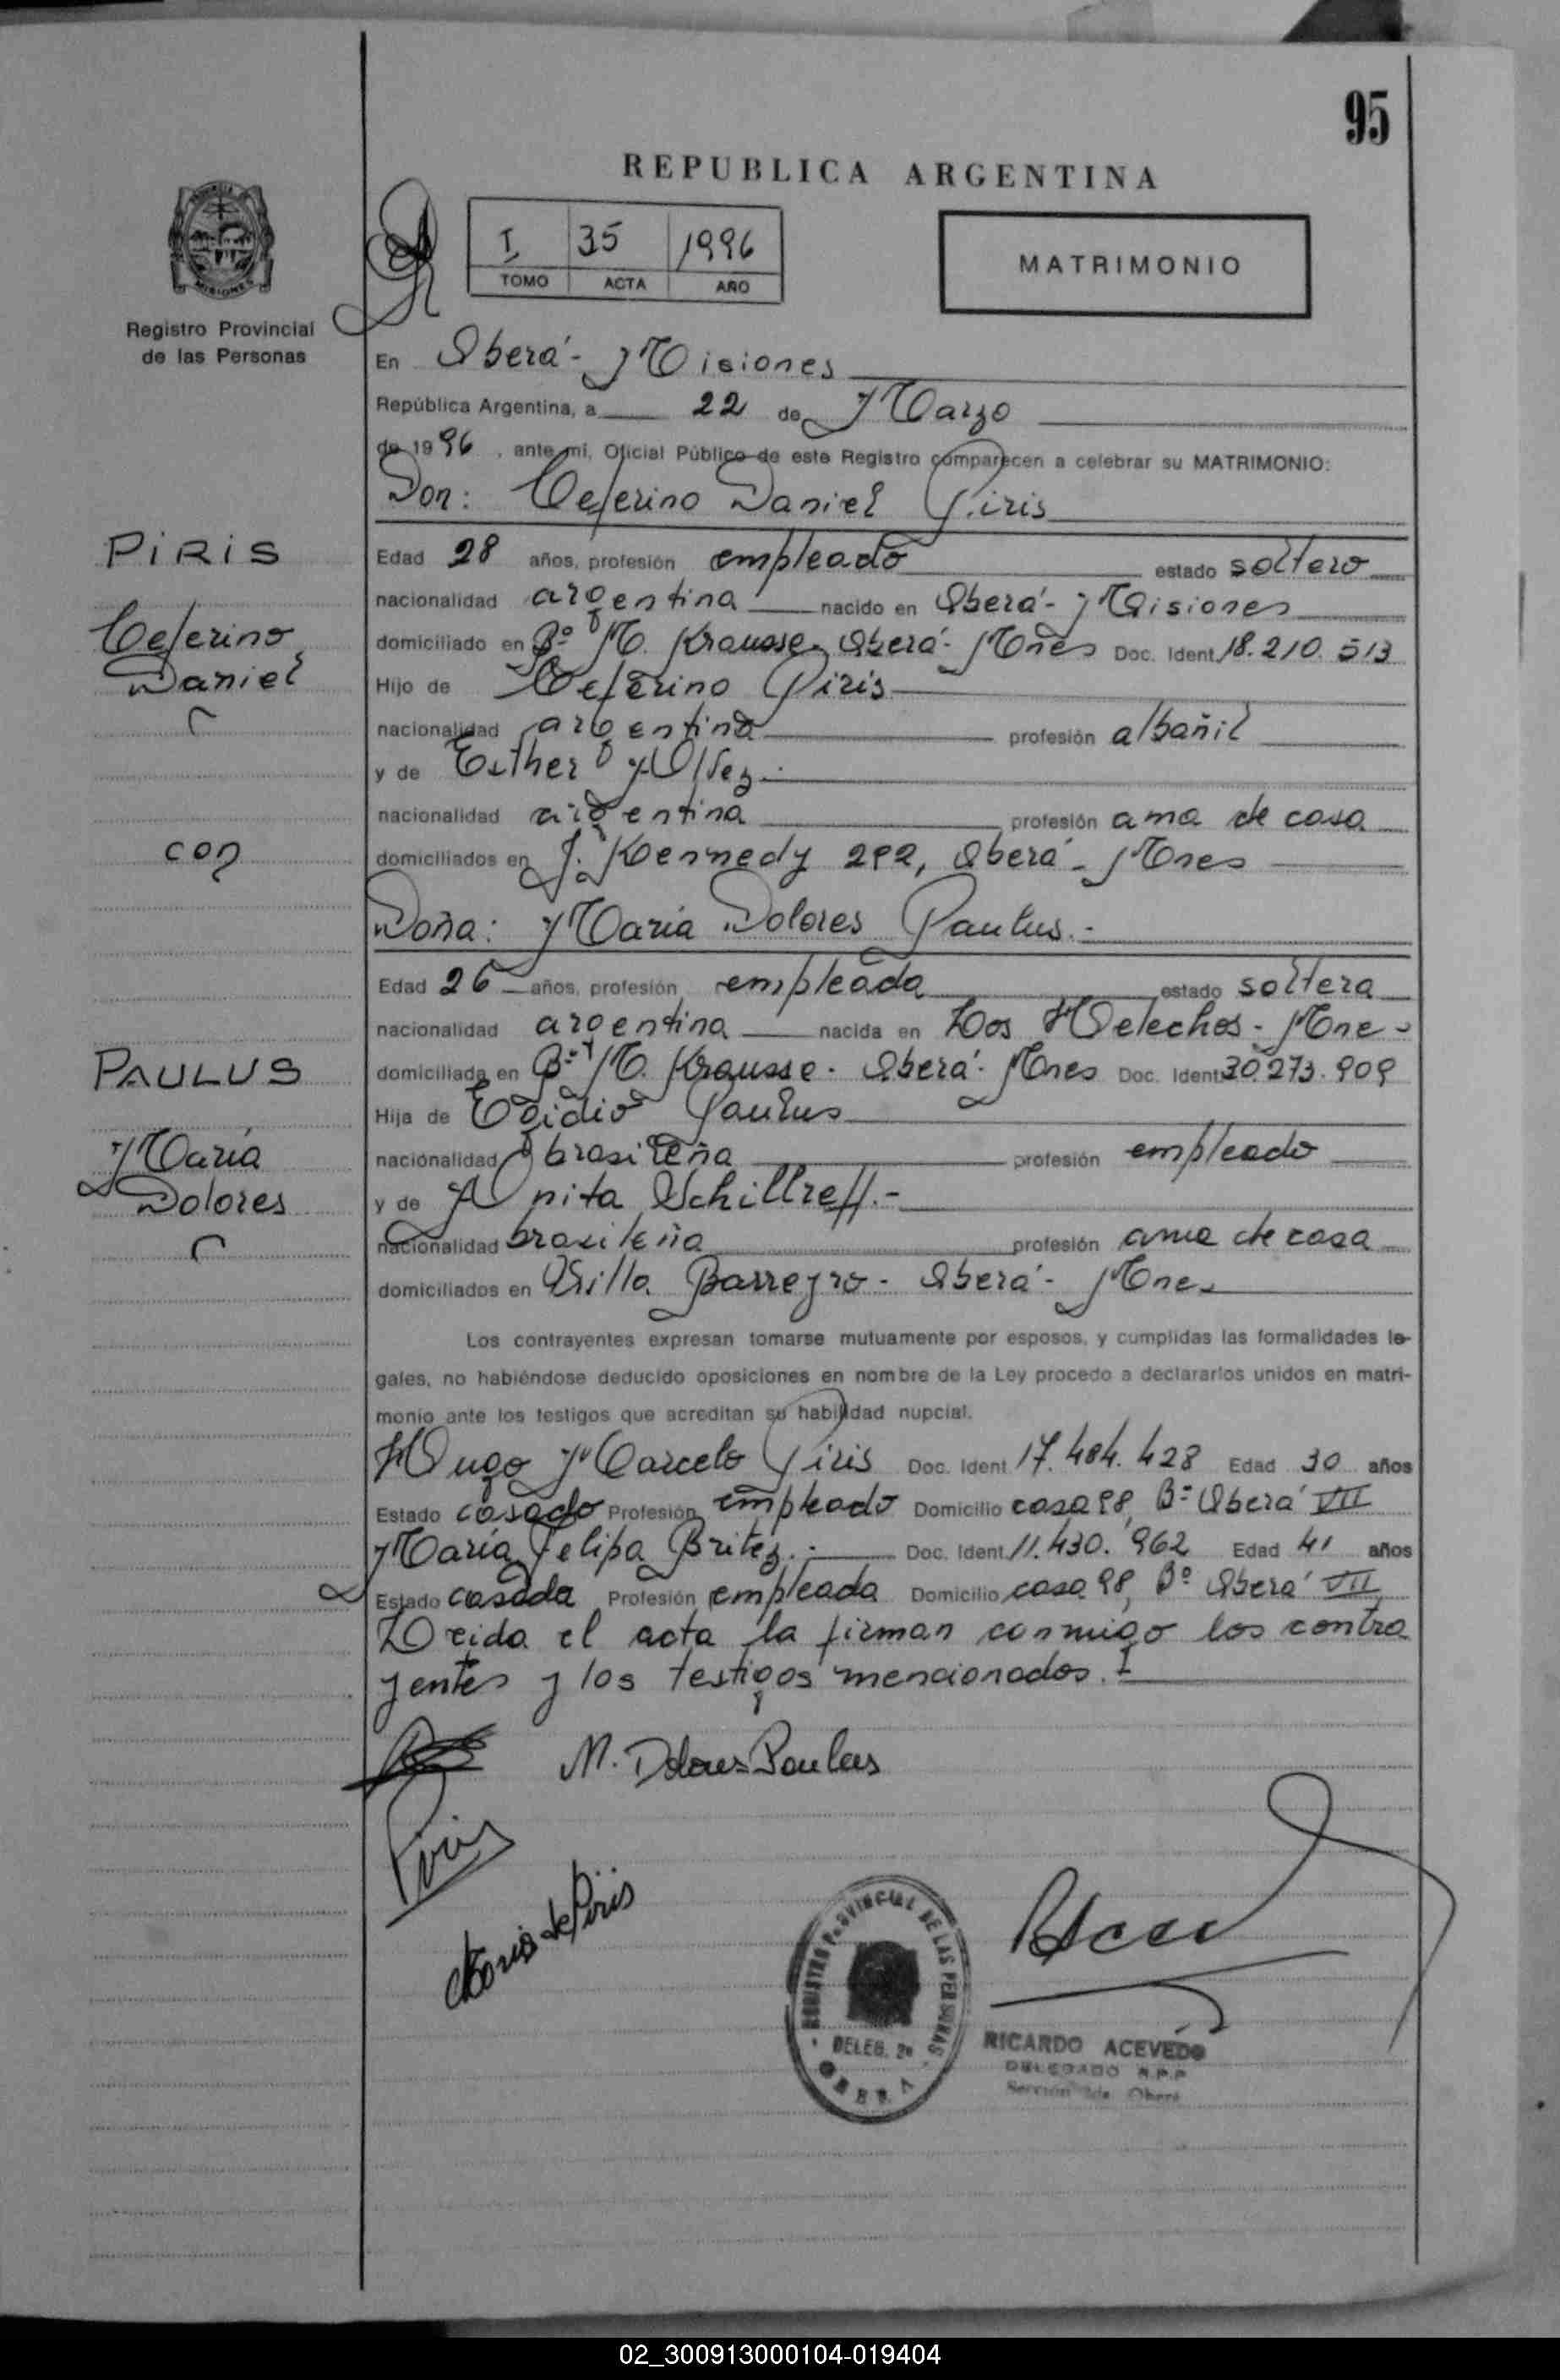 95
REPUBLICA ARGENTINA
I 35 1996
TOMO ACTA AÑO
MATRIMONIO
MISIONES
Registro Provincial
de las Personas
En Oberá - Misiones
República Argentina, a 22 de Marzo
de 1996, ante mi, Oficial Público de este Registro comparecen a celebrar su MATRIMONIO:
Don: Ceferino Daniel Piris
PIRIS
Edad 28 años, profesión empleado estado soltero
nacionalidad argentina nacido en Oberá - Misiones
Ceferino
domiciliado en Bº M. Krausse - Oberá - Mnes Doc. Ident. 18.210.513
Daniel
Hijo de Ceferino Piris
nacionalidad argentina profesión albañil
y de Esther
nacionalidad argentina profesión ama de casa
con
domiciliados en J. Kennedy 292, Oberá - Mnes
Doña: María Dolores Paulus.-
Edad 26 años, profesión empleada estado soltera
nacionalidad argentina nacida en Los Helechos - Mnes
PAULUS
domiciliada en Bº M. Krausse - Oberá - Mnes Doc. Ident. 30.273.909
Hija de Egidio Paulus
María
nacionalidad brasileña profesión empleado
Dolores
y de Anita Schillreff.-
nacionalidad brasileña profesión ama de casa
domiciliados en Villa Barreyro - Oberá - Mnes
Los contrayentes expresan tomarse mutuamente por esposos, y cumplidas las formalidades le-
gales, no habiéndose deducido oposiciones en nombre de la Ley procedo a declararlos unidos en matri-
monio ante los testigos que acreditan su habilidad nupcial.
Hugo Marcelo Piris Doc. Ident. 17.484.428 Edad 30 años
Estado casado Profesión empleado Domicilio casa 98, Bº Oberá VII
María Felipa Britez.- Doc. Ident. 11.430.962 Edad 41 años
Estado casada Profesión empleada Domicilio casa 98, Bº Oberá VII
Leida el acta la firman conmigo los contra
yentes y los testigos mencionados.
M. Dolores Paulus
Piris
María de Piris
REGISTRO PROVINCIAL DE LAS PERSONAS
DELEG. 2ª
OBERA
RICARDO ACEVEDO
DELEGADO R.P.P
Sección 2da. Oberá
02_300913000104-019404